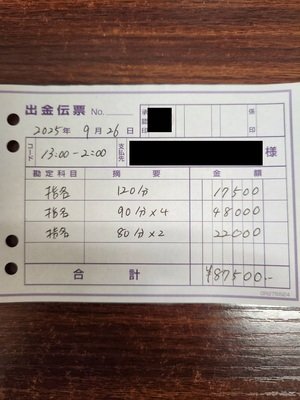 出金伝票 No. 承認印 係印
2025年 9月 26日
コード 13:00-2:00 支払先 様
勘定科目 摘要 金額
指名 120分 17500
指名 90分×4 48000
指名 80分×2 22000
合計 ¥87500-